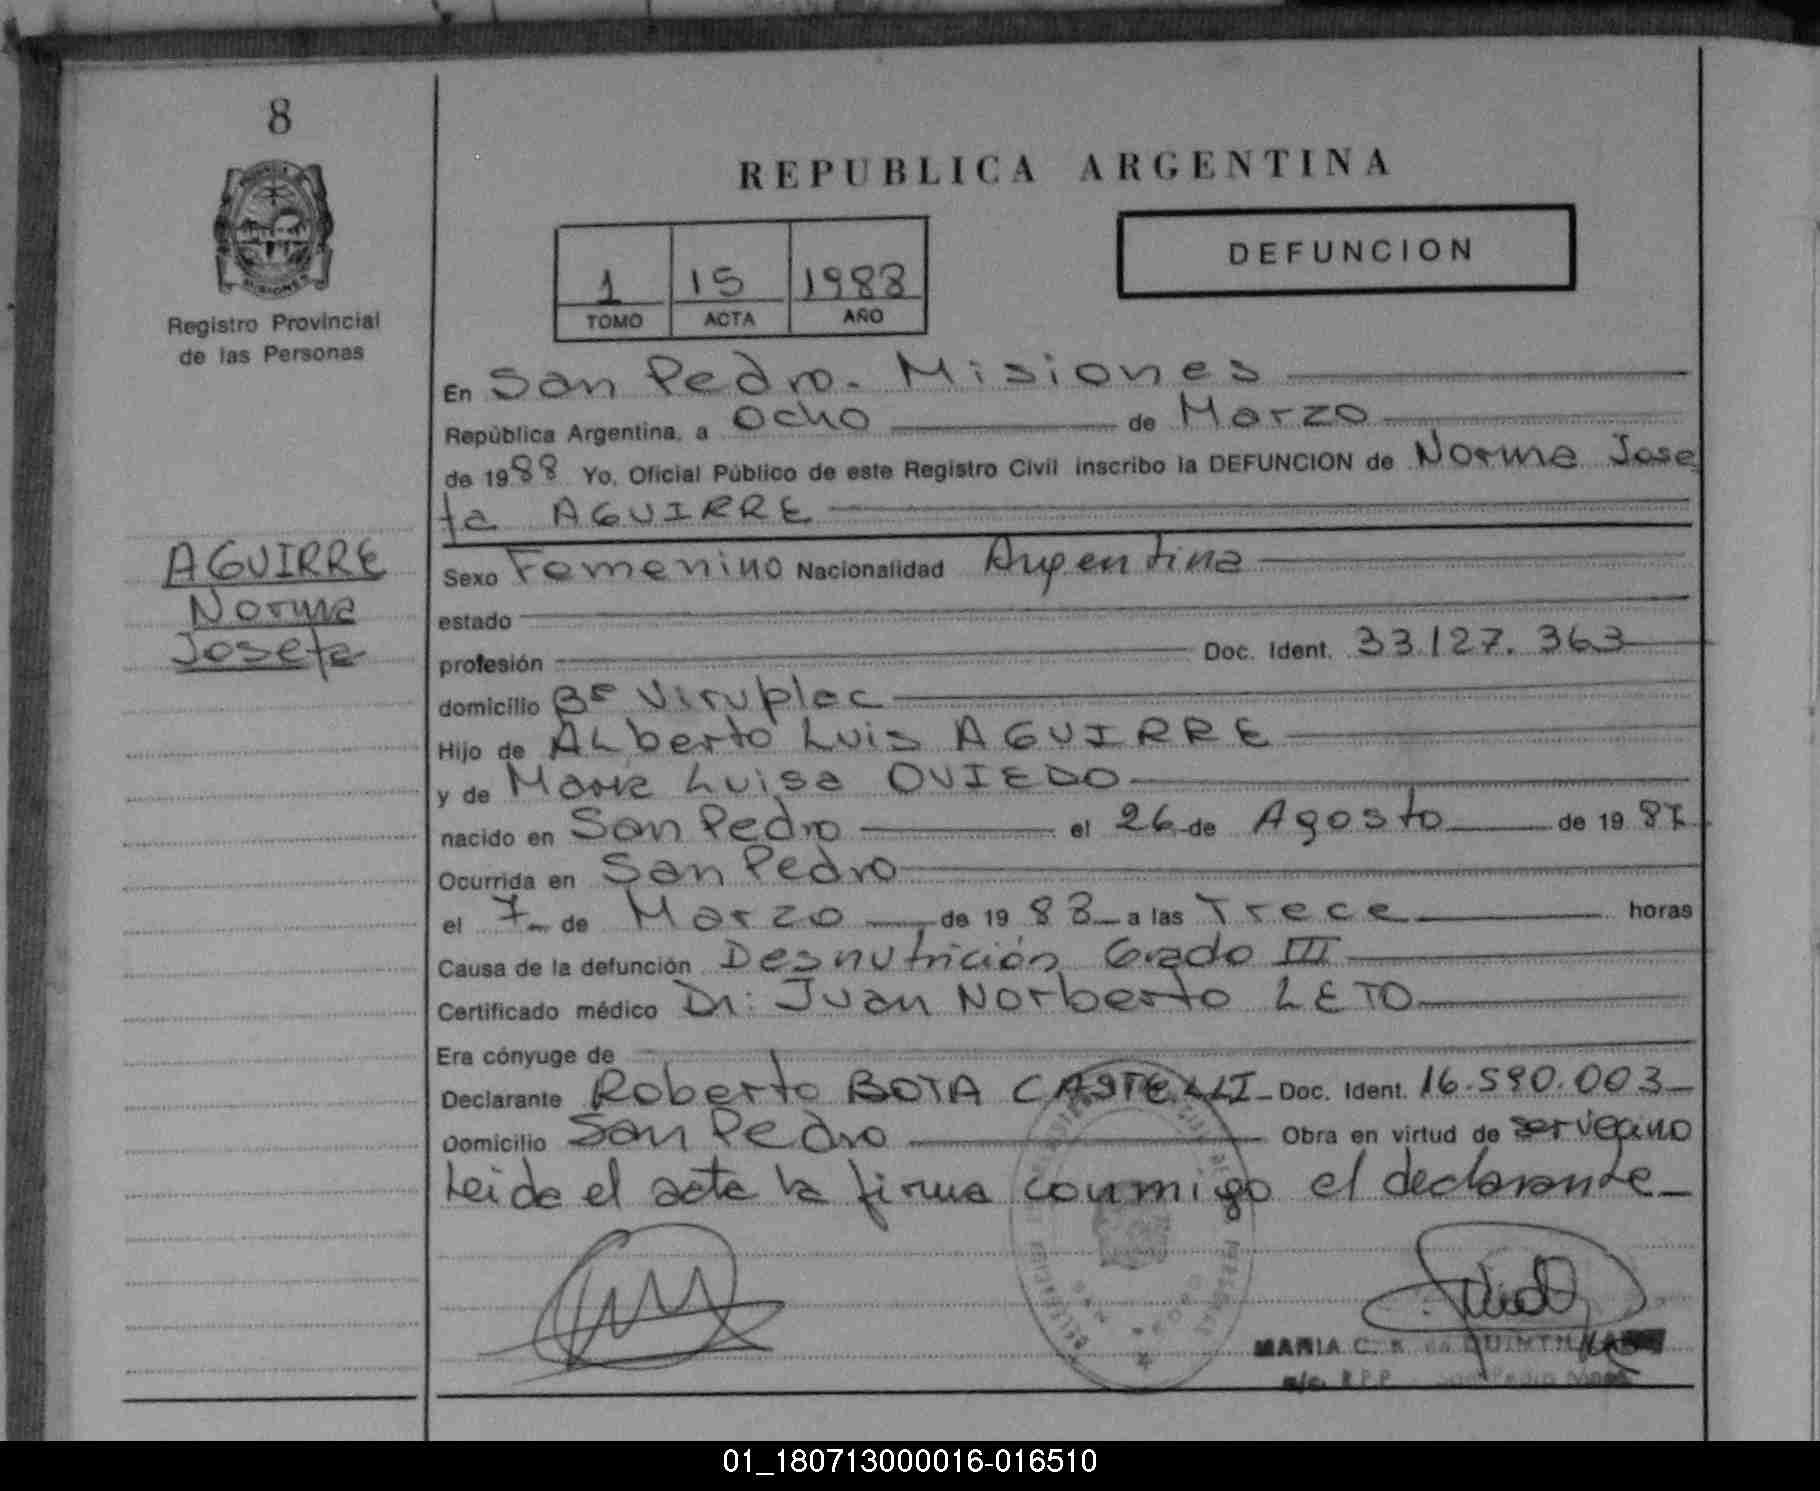 8
REPUBLICA ARGENTINA
DEFUNCION
1 15 1988
TOMO ACTA AÑO
Registro Provincial
de las Personas
En San Pedro - Misiones
República Argentina, a ocho de Marzo
de 1988 Yo, Oficial Público de este Registro Civil inscribo la DEFUNCION de Norma Jose
fa AGUIRRE
AGUIRRE
Norma
Josefa
Sexo Femenino Nacionalidad Argentina
estado
profesión Doc. Ident. 33.127.363
domicilio
Hijo de Alberto Luis AGUIRRE
y de Maria Luisa OVIEDO
nacido en San Pedro el 26 de Agosto de 1987
Ocurrida en San Pedro
el 7 de Marzo de 1988 a las Trece horas
Causa de la defunción Desnutrición Grado III
Certificado médico Dr: Juan Norberto LETO
Era cónyuge de
Declarante Roberto BOTA CASTELLI Doc. Ident. 16.590.003
Domicilio San Pedro Obra en virtud de ser vecino
Leida el acta la firma conmigo el declarante
MARIA C.
01_180713000016-016510